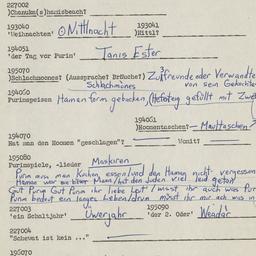 227002
)Chamuke(s)hamischesch?
193040 193041
'Weihnachten' Nittlnacht )Nittl?
194051
'der Tag vor Purim' Tanis Ester
195070
)Schlachmones? (Aussprache? Bräuche?) Zu 3 Freunde oder Verwandte
Schlachmónes von sein
194060
Purimspeisen Hamen form gebacken, gefüllt mit
194061
)Homentaschen? Mohntaschen
194070
Hat man den Homen "geschlagen"? Womit?
195080
Purimspiele, -lieder Maskiren
Purim muss man Kuchen essen und den Haman nicht vergessen
Haman war ein böser Mann, hat den Juden viel leid getan
Gut Purim Gut Purim ihr liebe Leit / wusst ihr auch was Pur
Purim bedeit ein langes Leben/ drum müsst ihr mir ach was
227003 195090
'ein Schuljahr' Uwerjahr 'der 2. Oder' Weádar
227004
"Schewat ist kein ..."
195070